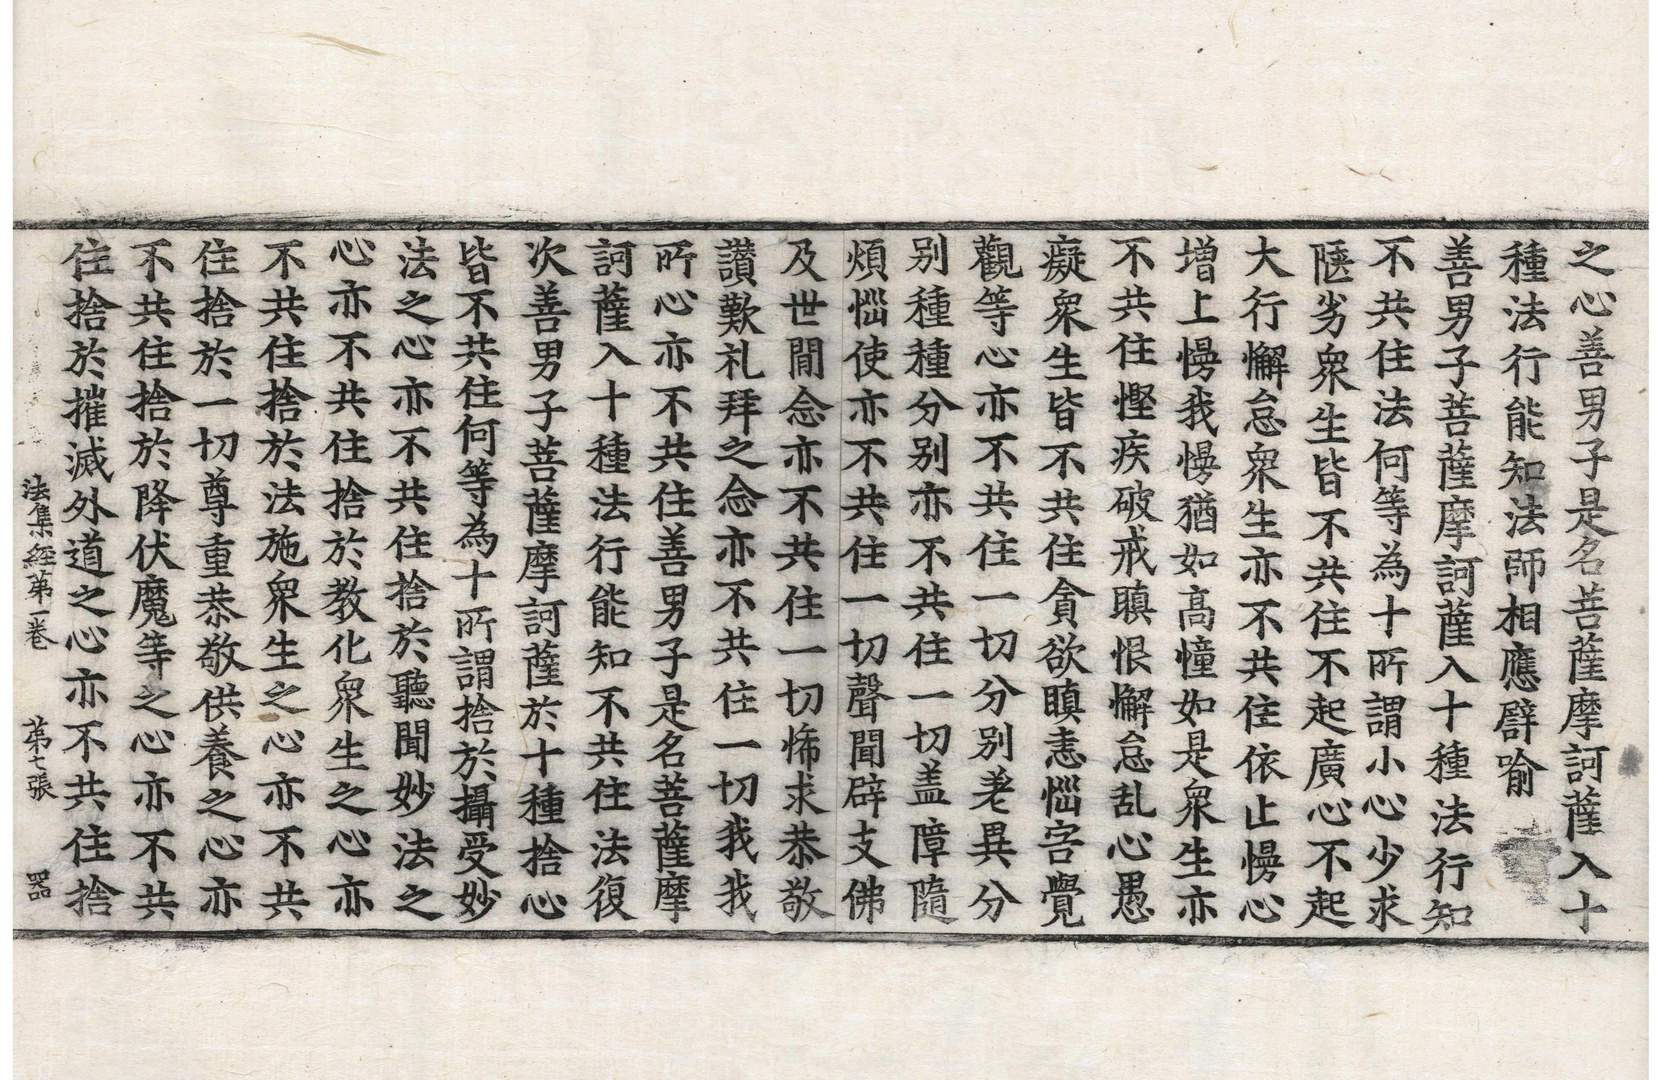 之心善男子是名菩薩摩訶薩入十
種法行能知法師相應辟喻
善男子菩薩摩訶薩入十種法行知
不共住法何等為十所謂小心少求
陿劣衆生皆不共住不起廣心不起
大行懈怠衆生亦不共住依止慢心
增上慢我慢猶如高幢如是衆生亦
不共住慳疾破戒瞋恨懈怠乱心愚
癡衆生皆不共住貪欲瞋恚惱害覺
觀等心亦不共住一切分別差異分
别種種分别亦不共住一切盖障隨
煩惱使亦不共住一切聲聞辟支佛
及世間念亦不共住一切悕求恭敬
讃歎礼拜之念亦不共住一切我我
所心亦不共住善男子是名菩薩摩
訶薩入十種法行能知不共住法復
次善男子菩薩摩訶薩於十種捨心
皆不共住何等為十所謂捨於攝受妙
法之心亦不共住捨於聽聞妙法之
心亦不共住捨於教化衆生之心亦
不共住捨於法施衆生之心亦不共
住捨於一切尊重恭敬供養之心亦
不共住捨於降伏魔等之心亦不共
住捨於摧滅外道之心亦不共住捨
法集經第一卷　第七張　器